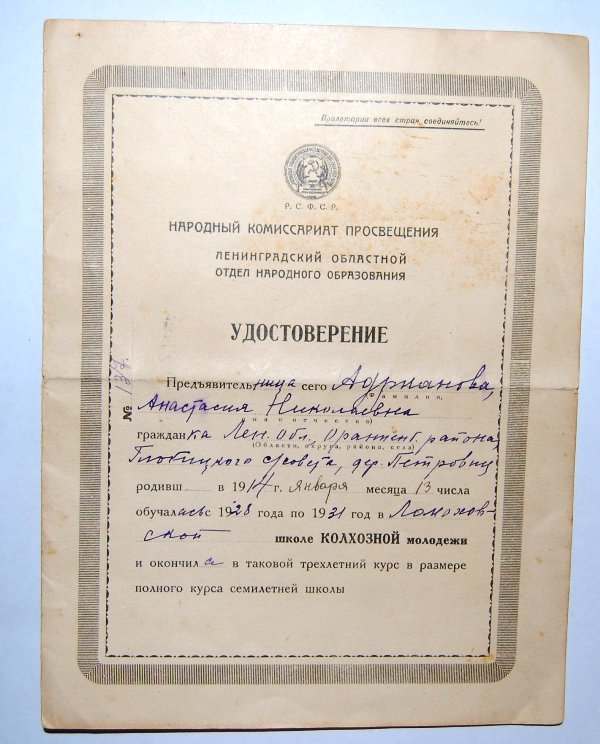 Пролетарии всех стран, соединяйтесь!
Р. С. Ф. С. Р.
НАРОДНЫЙ КОМИССАРИАТ ПРОСВЕЩЕНИЯ
ЛЕНИНГРАДСКИЙ ОБЛАСТНОЙ
ОТДЕЛ НАРОДНОГО ОБРАЗОВАНИЯ
УДОСТОВЕРЕНИЕ
№
Предъявительница сего Адрианова,
(Фамилия,
Анастасия Николаевна
имя и отчество)
гражданка Лен. Обл., Ораниенб. района,
(Области, округа, района, села)
Глобицкого с/совета, дер. Петровицы
родивш в 1914 г. января месяца 13 числа
обучалась с 1928 года по 1931 год в
ской школе КОЛХОЗНОЙ молодежи
и окончила в таковой трехлетний курс в размере
полного курса семилетней школы